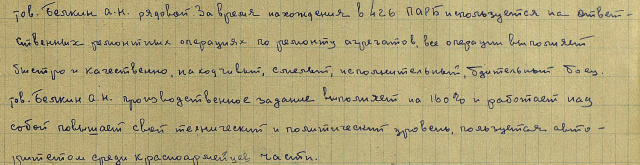 тов. Белкин А.Н. рядовой За время нахождения в 426 ПАРБ используется на ответ-
ственных ремонтных операциях по ремонту агрегатов, все операции выполняет
быстро и качественно, находчивый, смелый, исполнительный, бдительный боец.
тов. Белкин А.Н. производственное задание выполняет на 160% и работает над
собой повышает свой технический и политический уровень, пользуется авто-
ритетом среди красноармейцев части.